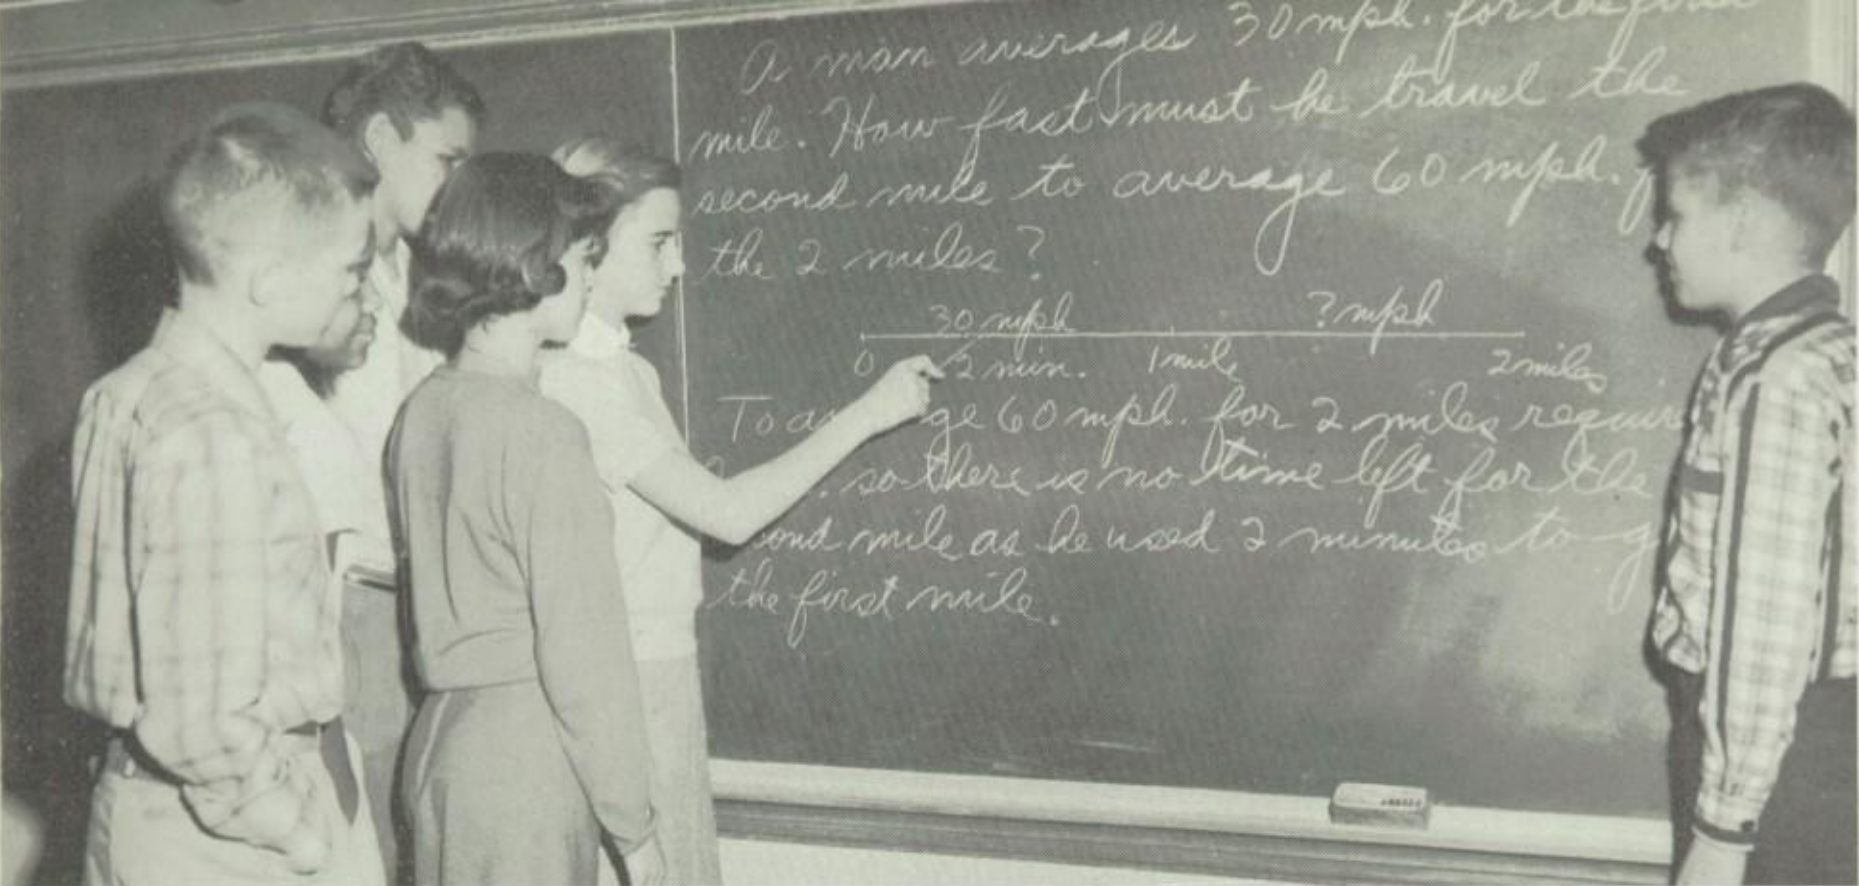 A man averages 30 mph. for the first
mile. How fast must he travel the
second mile to average 60 mph.
the 2 miles?
30 mph ? mph
0 2 min. 1 mile 2 miles
To 60 mph. for 2 miles
so there is no time left for the
mile as he used 2 minutes to
the first mile.